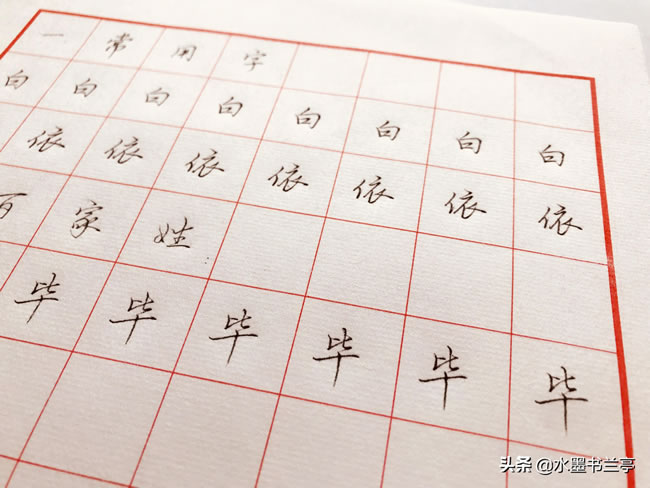 一常用字
白白白白白白白白
依依依依依依依
百家姓
毕毕毕毕毕毕
头条 @水墨书兰亭